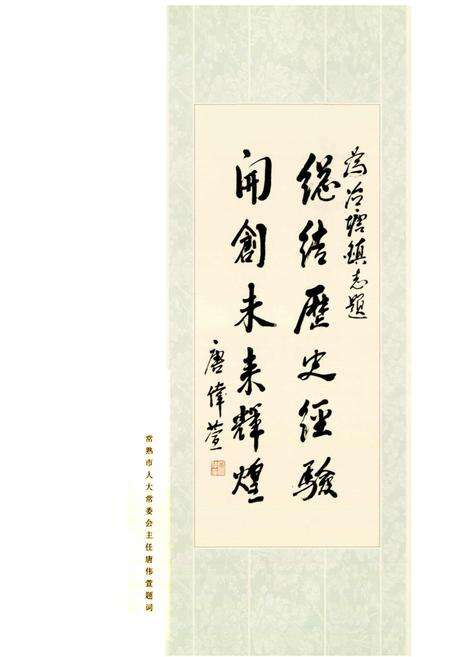 为冶塘鎮志題
總结歷史經驗
開創未来輝煌
唐偉萱
常熟市人大常委会主任唐伟萱题词